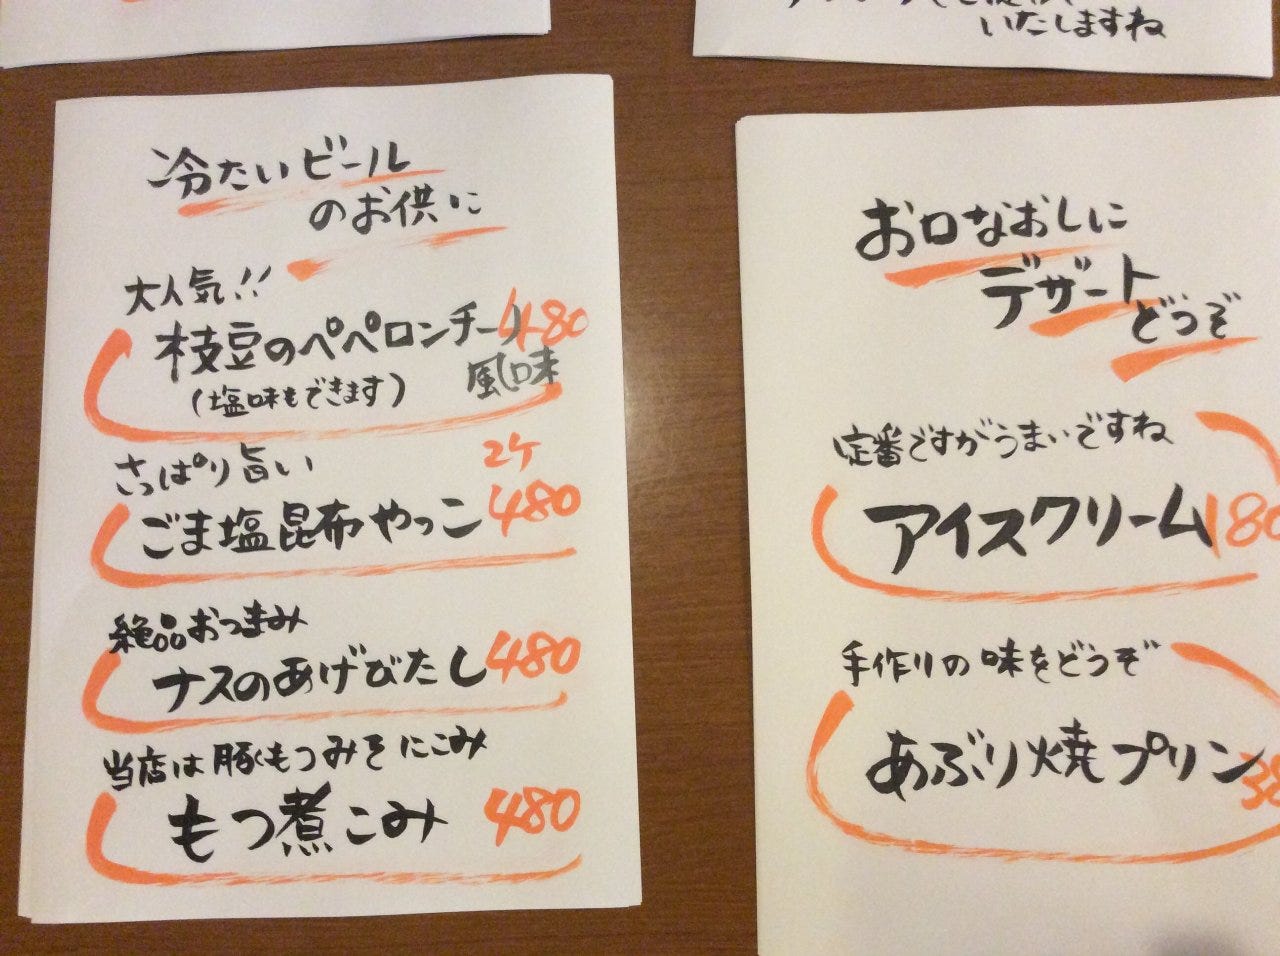 いたしますね
冷たいビール
のお供に
大人気!!
枝豆のペペロンチーノ 480
風味
(塩味もできます)
さっぱり旨い 2ケ
ごま塩昆布やっこ 480
絶品おつまみ
ナスのあげびたし 480
当店は豚もつみそにこみ
もつ煮こみ 480
お口なおしに
デザート
どうぞ
定番ですがうまいですね
アイスクリーム 180
手作りの味をどうぞ
あぶり焼プリン 38